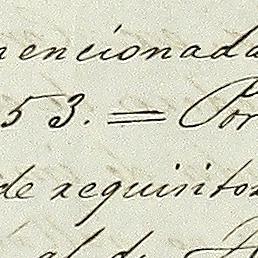 mencionada
53. = Por
de requisitos
al de